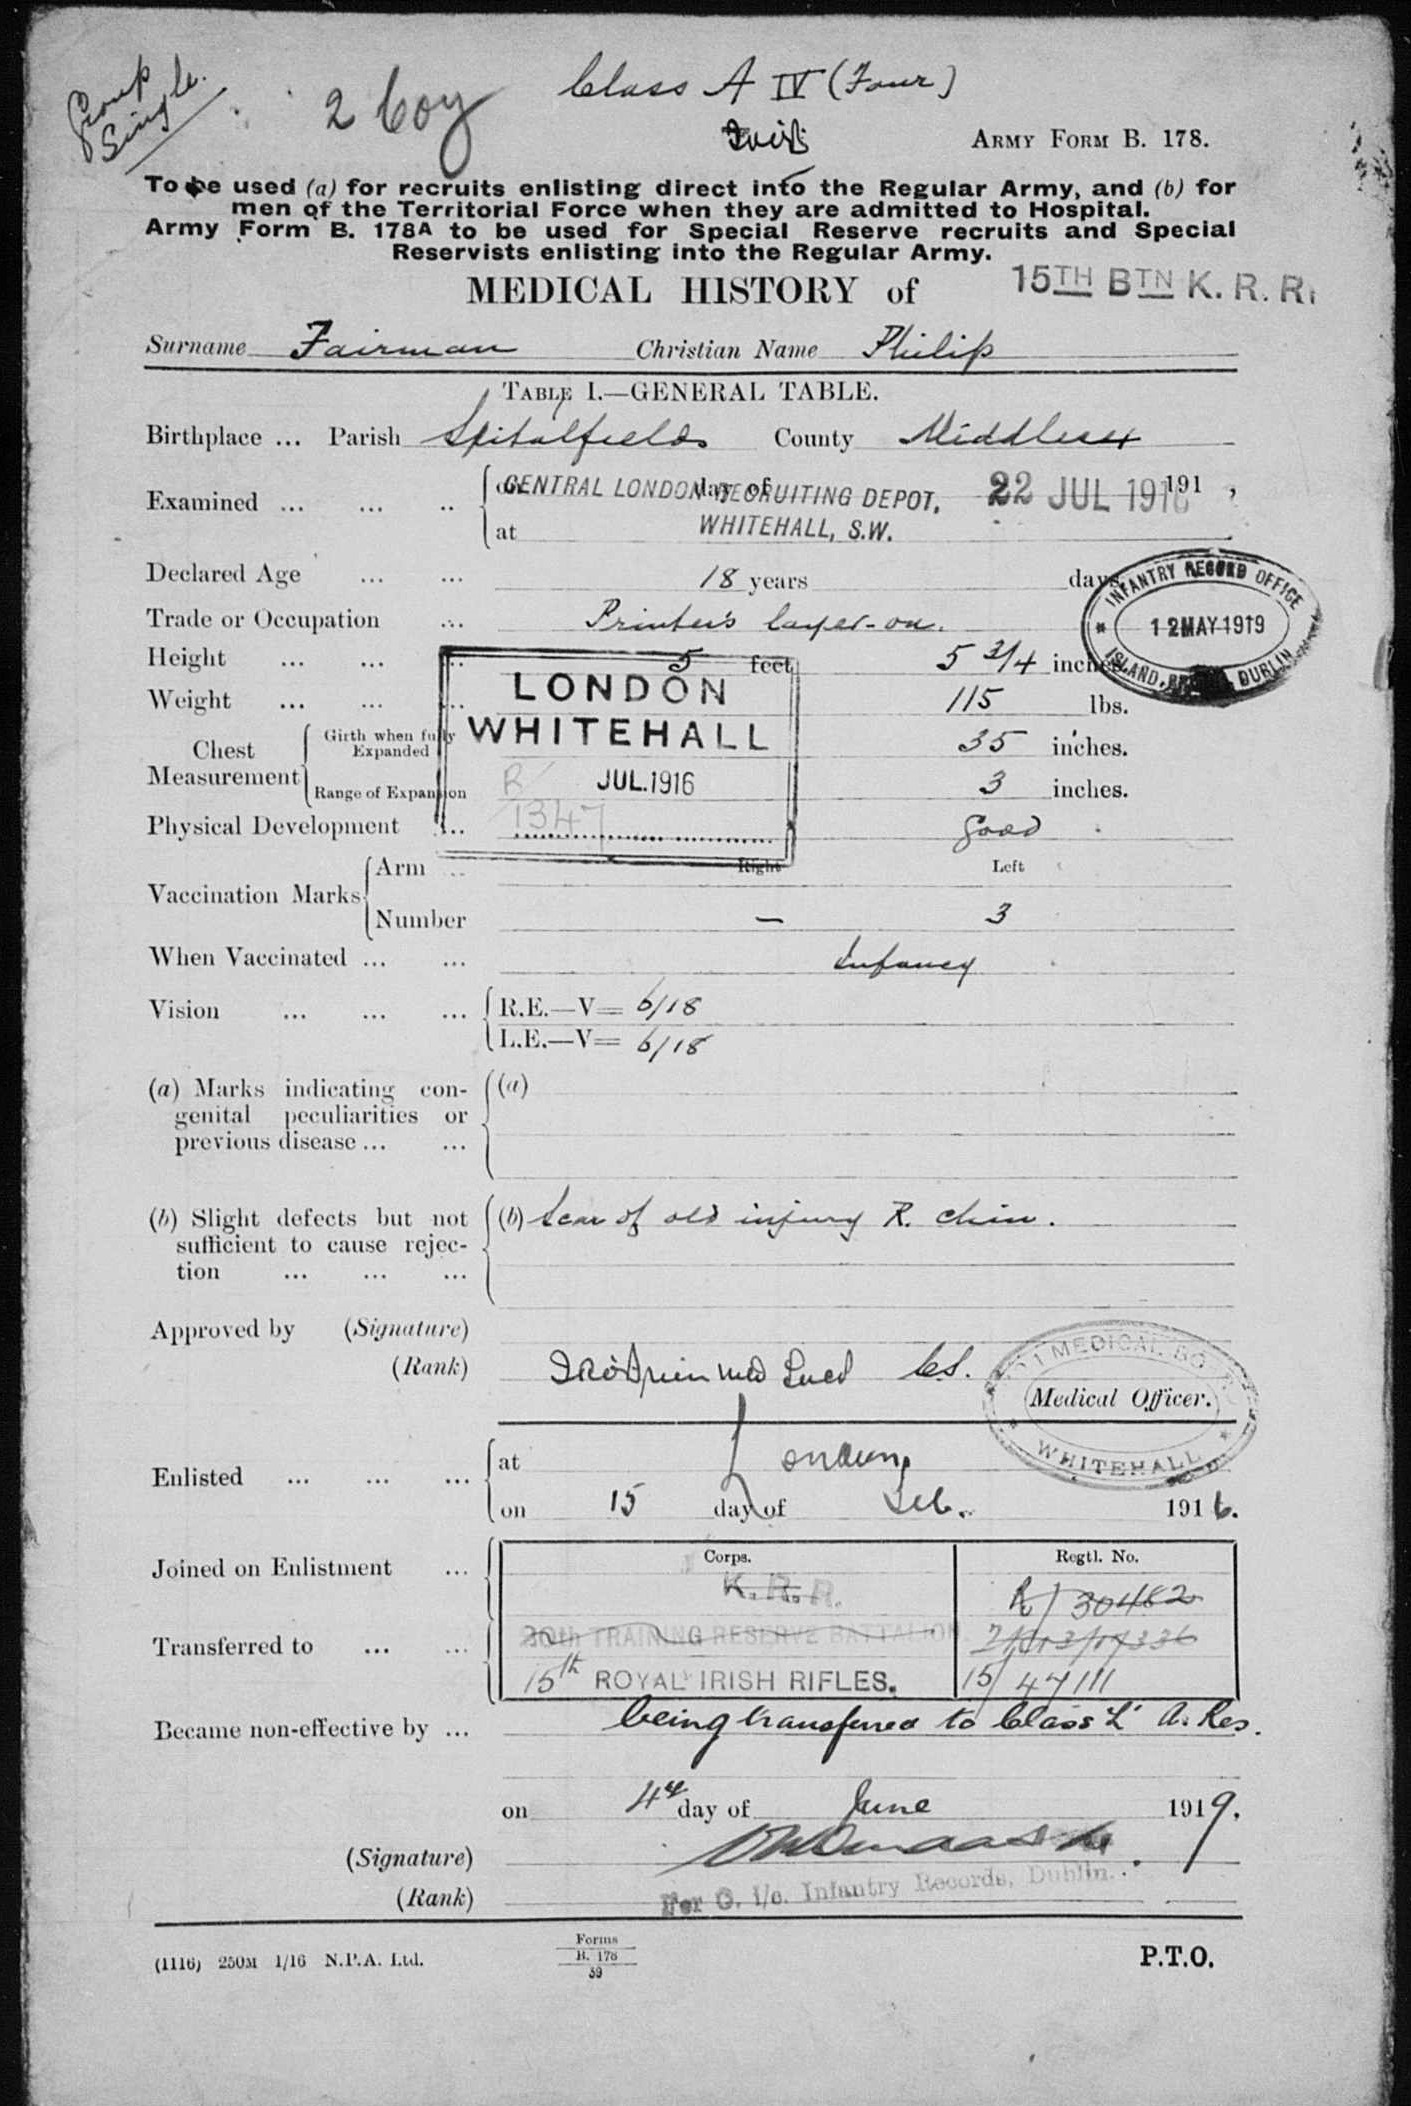 Group
Single.
2 Coy
Class A IV (Four)
ARMY FORM B. 178.
To be used (a) for recruits enlisting direct into the Regular Army, and (b) for
men of the Territorial Force when they are admitted to Hospital.
Army Form B. 178A to be used for Special Reserve recruits and Special
Reservists enlisting into the Regular Army.
MEDICAL HISTORY of
15TH BTN K. R. R.
Surname Fairman Christian Name Philip
TABLE I.—GENERAL TABLE.
Birthplace ... Parish Spitalfields County Middlesex
Examined ... ... .. on day of 191 ,
CENTRAL LONDON RECRUITING DEPOT, 22 JUL 1916
at WHITEHALL, S.W.
Declared Age ... ... 18 years days.
INFANTRY RECORD OFFICE
12 MAY 1919
ISLAND, DUBLIN
Trade or Occupation ... Printer's layer-on.
Height ... ... ... 5 feet 5 3/4 inches.
Weight ... ... ... 115 lbs.
LONDON
WHITEHALL
R/ JUL. 1916
1347
Chest Measurement Girth when fully Expanded 35 inches.
Range of Expansion 3 inches.
Physical Development ... good
Vaccination Marks Arm ... Right Left
Number — 3
When Vaccinated ... ... Infancy
Vision ... ... ... R.E.—V= 6/18
L.E.—V= 6/18
(a) Marks indicating con-
genital peculiarities or
previous disease ... ...
(a)
(b) Slight defects but not
sufficient to cause rejec-
tion ... ... ...
(b) Scar of old injury R. chin.
Approved by (Signature)
(Rank)
Medical Officer.
MEDICAL BOARD
WHITEHALL
Enlisted ... ... ... at London
on 15 day of Feb. 1916.
Corps. Regtl. No.
Joined on Enlistment ... K. R. R. R/30482
Transferred to ... ... 30th TRAINING RESERVE BATTALION
15th ROYAL IRISH RIFLES. 15/47111
Became non-effective by ... being transferred to Class "Z" A. Res.
on 4th day of June 1919.
(Signature)
(Rank) For O. i/c. Infantry Records, Dublin.
(1116) 250M 1/16 N.P.A. Ltd.
Forms
B. 178
39
P.T.O.